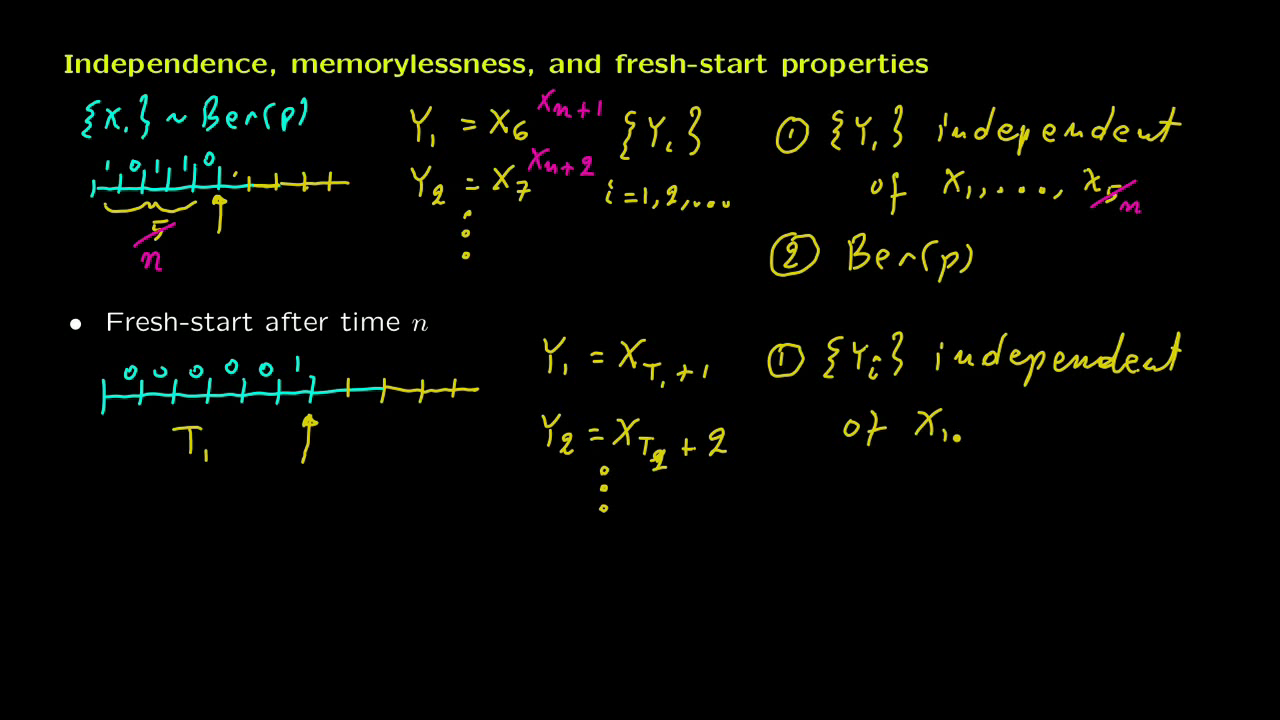 Independence, memorylessness, and fresh-start properties
{X_i} ~ Ber(p)
1 0 1 1 0
5
n
Y_1 = X_6 X_{n+1}
Y_2 = X_7 X_{n+2}
{Y_i}
i = 1, 2, ...
① {Y_i} independent
of X_1, ..., X_5 n
② Ber(p)
• Fresh-start after time n
0 0 0 0 0 1
T_1
Y_1 = X_{T_1 + 1}
Y_2 = X_{T_2 + 2}
① {Y_i} independent
of X_1.